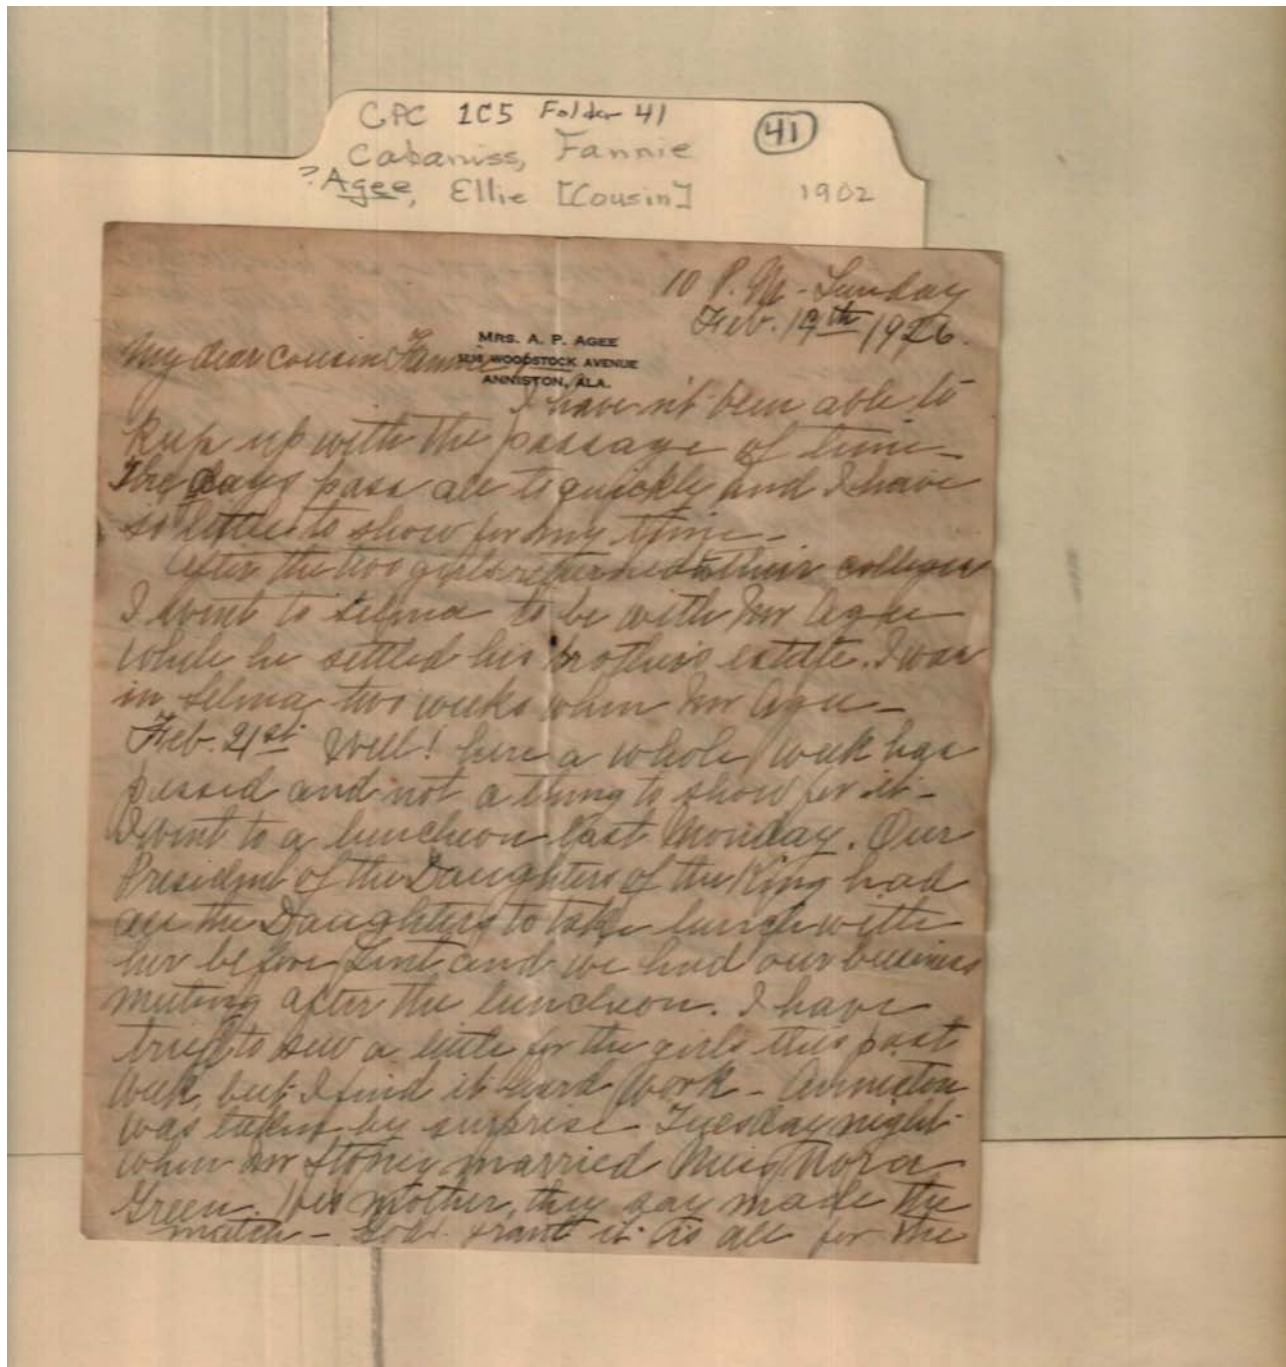 CPC 1C5 Folder 41
41
Cabaniss, Fannie
?Agee, Ellie [Cousin]
1902
10 P.M - Sunday
Feb. 19th 1926.
MRS. A. P. AGEE
WOODSTOCK AVENUE
ANNISTON, ALA.
My dear Cousin Fannie
I have n't been able to
keep up with the passage of time -
The days pass all to quickly and I have
so little to show for my time -
After the two girls returned to their colleges
I went to Selma to be with Mr Agee
while he settled his brother's estate. I was
in Selma two weeks when Mr Agee -
Feb. 21st Well! here a whole week has
passed and not a thing to show for it -
I went to a luncheon last Monday. Our
President of the Daughters of the King had
all the Daughters to take lunch with
her before Lent and we had our business
meeting after the luncheon. I have
tried to sew a little for the girls this past
week, but I find it hard work - Anniston
was taken by surprise Tuesday night
when Mr Stoney married Miss Nora
Green. Her mother, they say made the
match - God grant it is all for the